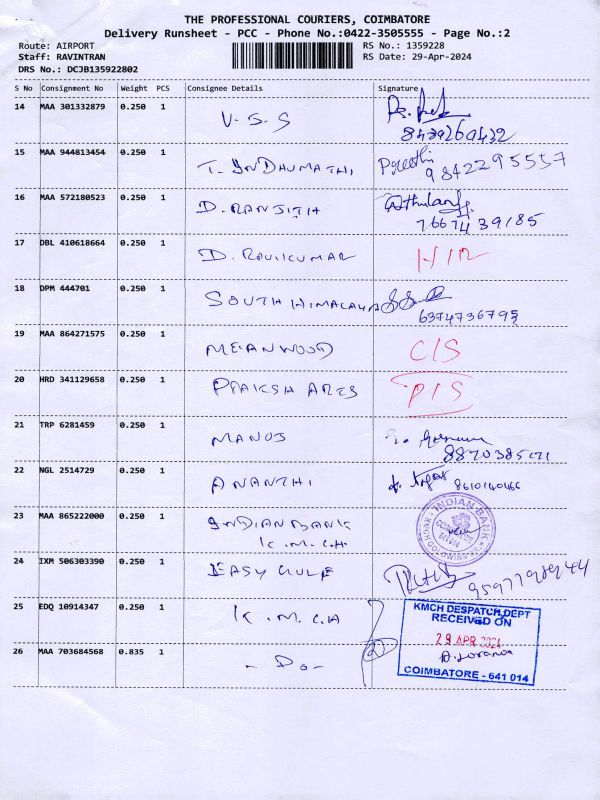 THE PROFESSIONAL COURIERS, COIMBATORE
Delivery Runsheet - PCC - Phone No.:0422-3505555 - Page No.:2
Route: AIRPORT
Staff: RAVINTRAN
DRS No.: DCJB135922802
RS No.: 1359228
RS Date: 29-Apr-2024
S No Consignment No Weight PCS Consignee Details Signature
14 MAA 301332879 0.250 1 V.S.S
8439260432
15 MAA 944813454 0.250 1 T. INDHUMATHI Preethi
9842295557
16 MAA 572180523 0.250 1 D. RANJITH
7667439185
17 DBL 410618664 0.250 1 D. RAVIKUMAR
18 DPM 444701 0.250 1 SOUTH HIMALAYA
6374736795
19 MAA 864271575 0.250 1 MEANWOOD C/S
20 HRD 341129658 0.250 1 ARTS P/S
21 TRP 6281459 0.250 1 MANOJ
22 NGL 2514729 0.250 1 ANANTHI
8610140466
23 MAA 865222000 0.250 1 INDIAN BANK
K.M.C.H
INDIAN BANK
COIMBATORE
641 014
24 IXM 506303390 0.250 1 EASY
25 EDQ 10914347 0.250 1 K.M.C.H
KMCH DESPATCH DEPT
RECEIVED ON
29 APR 2024
COIMBATORE - 641 014
26 MAA 703684568 0.835 1 - Do - 2